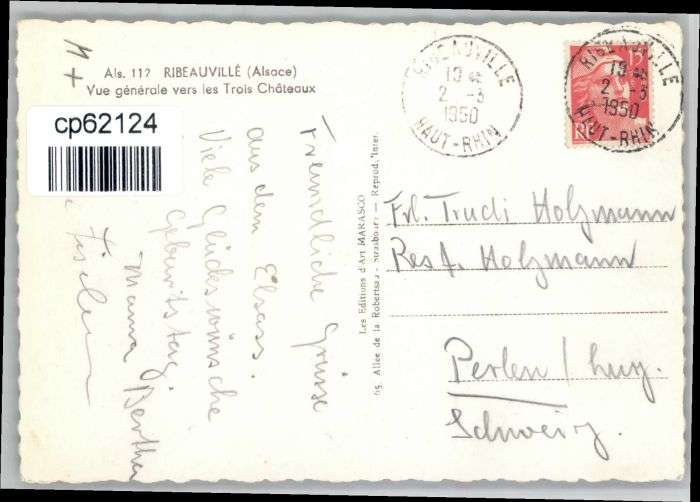 Als. 112 RIBEAUVILLÉ (Alsace)
Vue générale vers les Trois Châteaux
cp62124
Freundliche Grüsse
aus dem Elsass.
Viele Glückswünsche
Geburtstag.
Mama Berthe
Les Editions d'Art MARASCO
65, Allée de la Robertsau - Strasbourg - Reprod. Inter.
RIBEAUVILLE
19 45
2 - 3
1950
HAUT-RHIN
15F
RF
RIBEAUVILLE
19 45
2 - 3
1950
HAUT-RHIN
Frl. Trudi Holzmann
Rest. Holzmann
Perlen / Luz.
Schweiz.